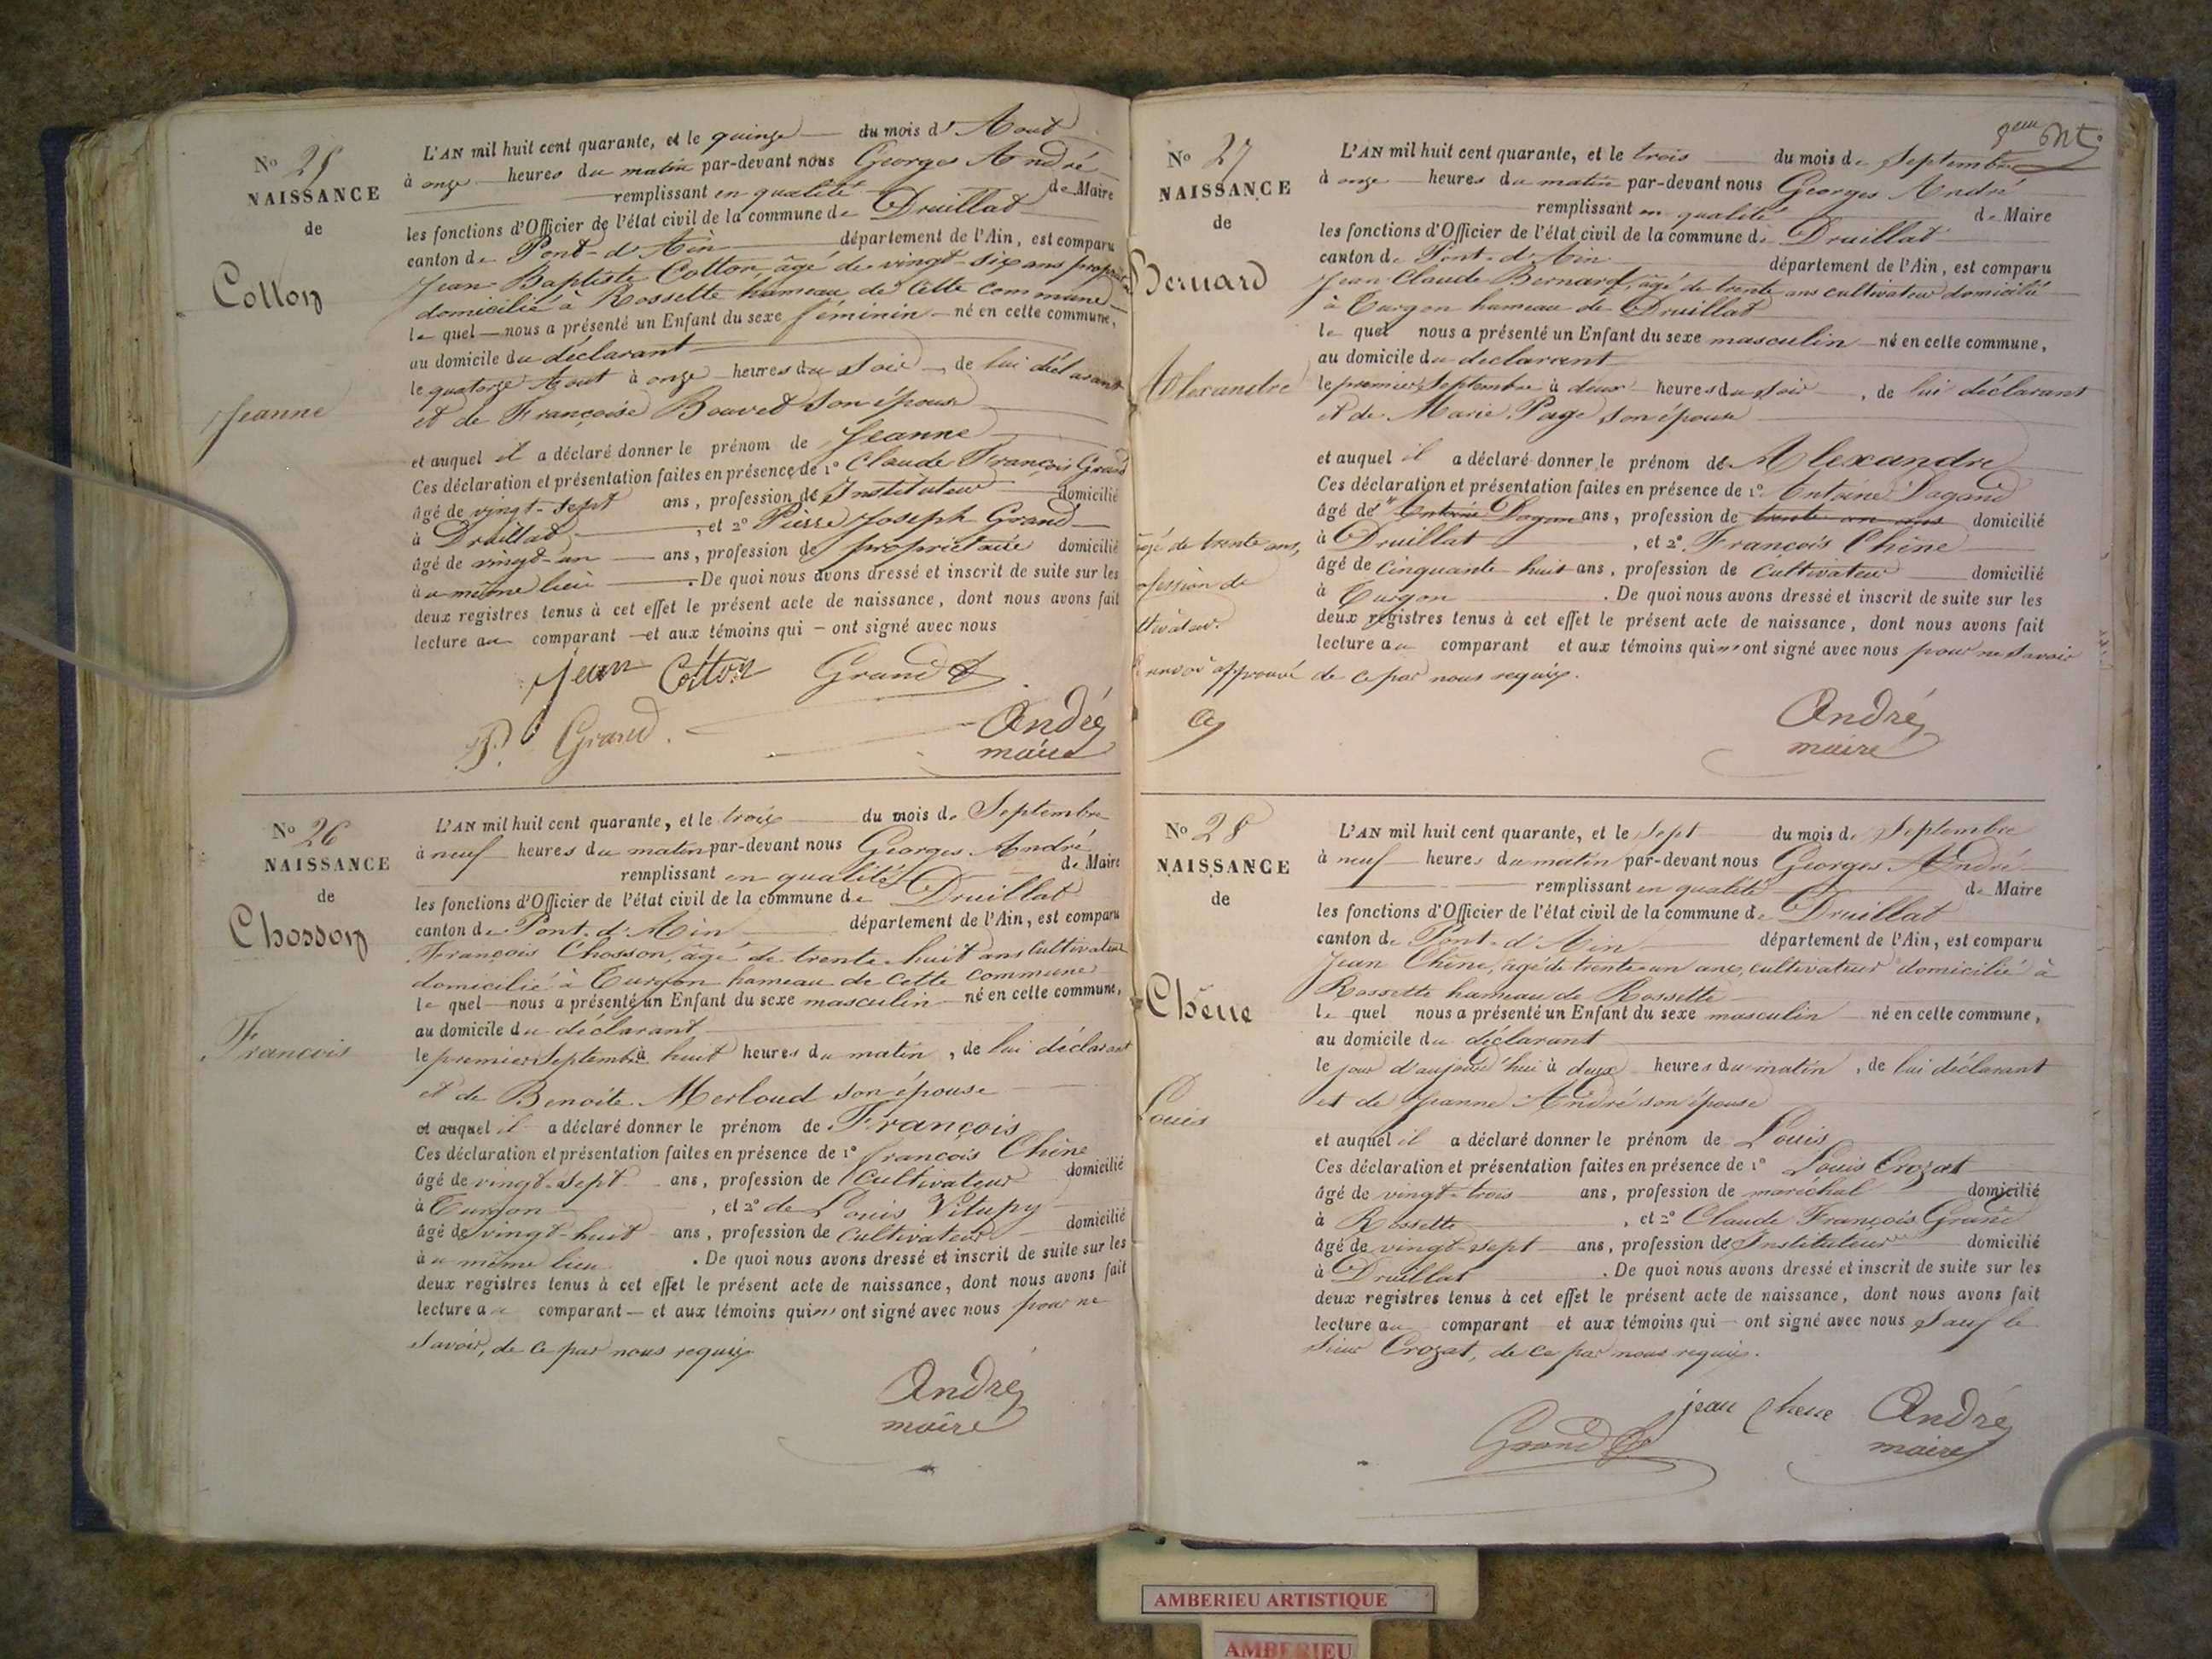 No 25
NAISSANCE
de
Cotton
Jeanne
L'AN mil huit cent quarante, et le quinze du mois d' Aout
à onze heures du matin par-devant nous Georges André
remplissant en qualité de Maire
les fonctions d'Officier de l'état civil de la commune de Druillat
canton de Pont-d'Ain département de l'Ain, est comparu
Jean-Baptiste Cotton, âgé de vingt-six ans
domicilié à Rossette hameau de cette commune
le quel nous a présenté un Enfant du sexe féminin né en cette commune,
au domicile du déclarant
le quatorze Aout à onze heures du soir, de lui déclarant
et de Françoise Bouvet son épouse
et auquel il a déclaré donner le prénom de Jeanne
Ces déclaration et présentation faites en présence de 1° Claude François Grand
âgé de vingt-sept ans, profession de Instituteur domicilié
à Druillat, et 2° Pierre Joseph Grand
âgé de vingt-un ans, profession de propriétaire domicilié
au même lieu. De quoi nous avons dressé et inscrit de suite sur les
deux registres tenus à cet effet le présent acte de naissance, dont nous avons fait
lecture au comparant et aux témoins qui ont signé avec nous
Jean Cotton Grand
P. Grand. André
maire
No 26
NAISSANCE
de
Chosson
François
L'AN mil huit cent quarante, et le trois du mois de Septembre
à neuf heures du matin par-devant nous Georges André
remplissant en qualité de Maire
les fonctions d'Officier de l'état civil de la commune de Druillat
canton de Pont-d'Ain département de l'Ain, est comparu
François Chosson, âgé de trente-huit ans cultivateur
domicilié à Turgon hameau de cette commune
le quel nous a présenté un Enfant du sexe masculin né en cette commune,
au domicile du déclarant
le premier Septembre à huit heures du matin, de lui déclarant
et de Benoite Merloud son épouse
et auquel il a déclaré donner le prénom de François
Ces déclaration et présentation faites en présence de 1° françois Chêne
âgé de vingt-sept ans, profession de Cultivateur domicilié
à Turgon, et 2° de Louis Vitupy
âgé de vingt-huit ans, profession de cultivateur domicilié
au même lieu. De quoi nous avons dressé et inscrit de suite sur les
deux registres tenus à cet effet le présent acte de naissance, dont nous avons fait
lecture au comparant et aux témoins qui n' ont signé avec nous pour ne
savoir, de ce par nous requis
André
maire
No 27
NAISSANCE
de
Bernard
Alexandre
L'AN mil huit cent quarante, et le trois du mois de Septembre
à onze heures du matin par-devant nous Georges André
remplissant en qualité de Maire
les fonctions d'Officier de l'état civil de la commune de Druillat
canton de Pont-d'Ain département de l'Ain, est comparu
Jean Claude Bernard, âgé de trente ans cultivateur domicilié
à Turgon hameau de Druillat
le quel nous a présenté un Enfant du sexe masculin né en cette commune,
au domicile du declarant
le premier Septembre à deux heures du soir, de lui déclarant
et de Marie Page son épouse
et auquel il a déclaré donner le prénom de Alexandre
Ces déclaration et présentation faites en présence de 1° Antoine
âgé de Antoine ans, profession de domicilié
à Druillat, et 2° François Chêne
âgé de cinquante-huit ans, profession de cultivateur domicilié
à Turgon. De quoi nous avons dressé et inscrit de suite sur les
deux registres tenus à cet effet le présent acte de naissance, dont nous avons fait
lecture au comparant et aux témoins qui n' ont signé avec nous pour ne savoir
de ce par nous requis.
âgé de trente ans,
ofession de
ltivateur.
Renvoi approuvé
André
maire
No 28
NAISSANCE
de
Chêne
Louis
L'AN mil huit cent quarante, et le sept du mois de Septembre
à neuf heures du matin par-devant nous Georges André
remplissant en qualité de Maire
les fonctions d'Officier de l'état civil de la commune de Druillat
canton de Pont-d'Ain département de l'Ain, est comparu
Jean Chêne, âgé de trente-un ans, cultivateur domicilié à
Rossette hameau de Rossette
le quel nous a présenté un Enfant du sexe masculin né en cette commune,
au domicile du déclarant
le jour d'aujourd'hui à deux heures du matin, de lui déclarant
et de Jeanne André son épouse
et auquel il a déclaré donner le prénom de Louis
Ces déclaration et présentation faites en présence de 1° Louis Crozat
âgé de vingt-trois ans, profession de maréchal domicilié
à Rossette, et 2° Claude François Grand
âgé de vingt-sept ans, profession de Instituteur domicilié
à Druillat. De quoi nous avons dressé et inscrit de suite sur les
deux registres tenus à cet effet le présent acte de naissance, dont nous avons fait
lecture au comparant et aux témoins qui ont signé avec nous sauf le
sieur Crozat, de ce par nous requis.
jean chene André
Grand maire
AMBERIEU ARTISTIQUE
AMBERIEU